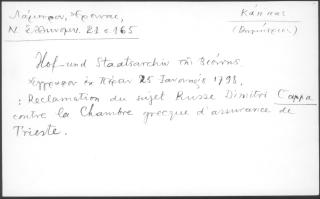 Λάμπρου, Σπυρίδωνος,
Ν. Ἑλληνομν. 21 σ 165
Κάππας
(Δημήτριος)
Hof-und Staatsarchiv τῆς Βιέννης.
Ἔγγραφον ἐκ Πέραν 25 Ἰανουαρίου 1798
: Reclamation du sujet Russe Dimitri Cappa
contre la Chambre grecque d'assurance de
Trieste.